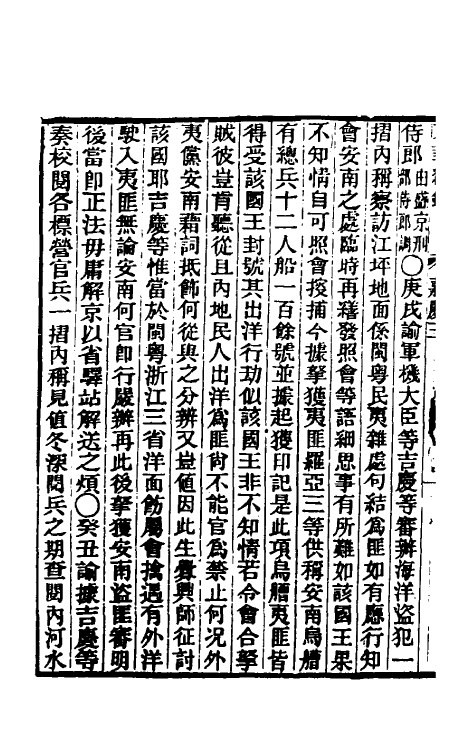 侍郎由盛京刑部侍郎調〇庚戌諭軍機大臣等吉慶等審辦海洋盜犯一
摺內稱察訪江坪地面係閩粵民夷雜處句結爲匪如有應行知
會安南之處臨時再繕發照會等語細思事有所難如該國王果
不知情自可照會搜捕今據拏獲夷匪羅亞三等供稱安南烏艚
有總兵十二人船一百餘號並據起獲印記是此項烏艚夷匪皆
得受該國王封號其出洋行劫似該國王非不知情若令會合拏
賊彼豈肯聽從且內地民人出洋爲匪尙不能官爲禁止何况外
夷儻安南藉詞抵飾何從與之分辨又豈值因此生釁興師征討
該國耶吉慶等惟當於閩粵浙江三省洋面飭屬會擒遇有外洋
駛入夷匪無論安南何官卽行嚴辦再此後拏獲安南盜匪審明
後當卽正法毋庸解京以省驛站解送之煩〇癸丑諭據吉慶等
奏校閱各標營官兵一摺內稱見值冬深閱兵之期查閱內河水